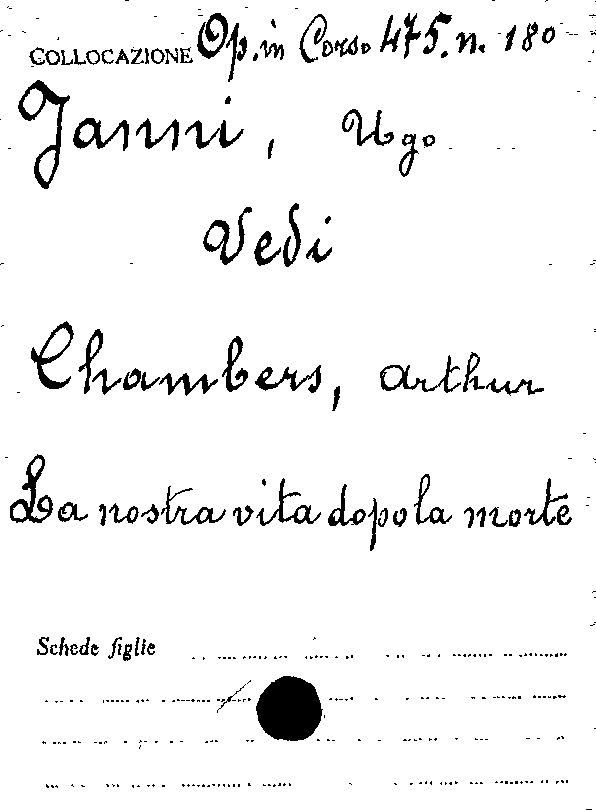 COLLOCAZIONE Op. in Corso 475. n. 180
Janni, Ugo
Vedi
Chambers, Arthur
La nostra vita dopo la morte
Schede figlie